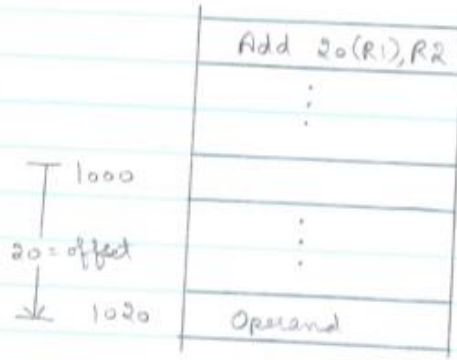 Add 20(R1), R2
1000
20 = offset
1020 Operand